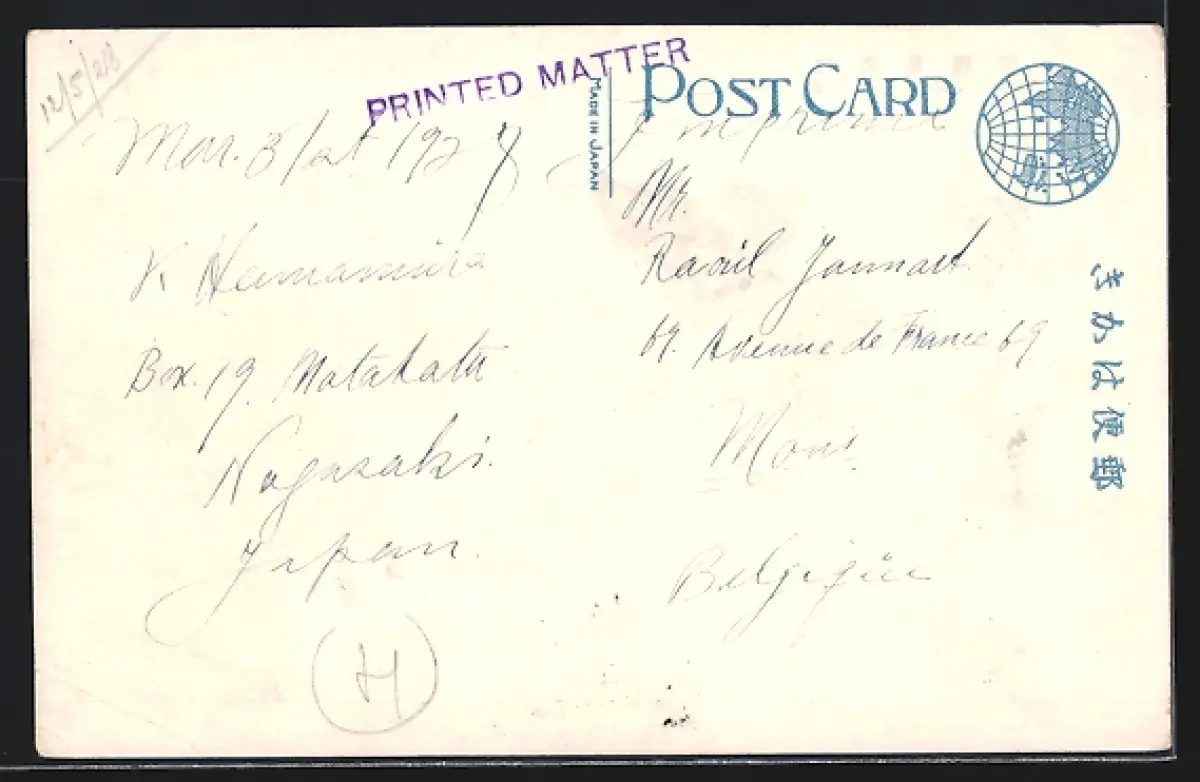 12/5/28
PRINTED MATTER
Mar. 31st 1928
K Hamamura
Box. 19.
Nagasaki.
Japan.
H
MADE IN JAPAN
POST CARD
Imprimé
Mr.
Raoul
69. Avenue de France 69
Mons
Belgique
郵便はかき